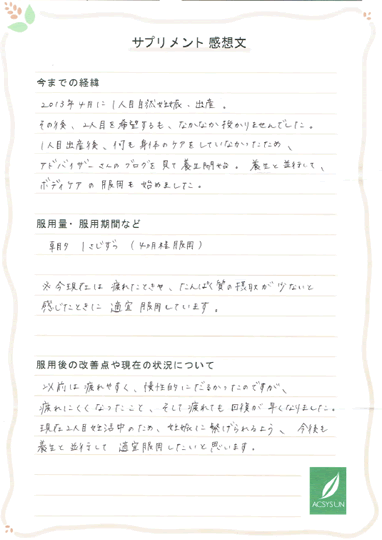 サプリメント 感想文
今までの経緯
2013年4月に1人目自然妊娠・出産。
その後、2人目を希望するも、なかなか授かりませんでした。
1人目出産後、何も身体のケアをしていなかったため、
アドバイザーさんのブログを見て養生開始。養生と並行して、
ボディケアの服用も始めました。
服用量・服用期間など
朝夕 1さじずつ（4ヶ月程服用）
※今現在は疲れたときや、たんぱく質の摂取が少ないと
感じたときに適宜服用しています。
服用後の改善点や現在の状況について
以前は疲れやすく、慢性的にだるかったのですが、
疲れにくくなったこと、そして疲れても回復が早くなりました。
現在2人目妊活中のため、妊娠に繋げられるよう、今後も
養生と並行して適宜服用したいと思います。
ACSYSUN